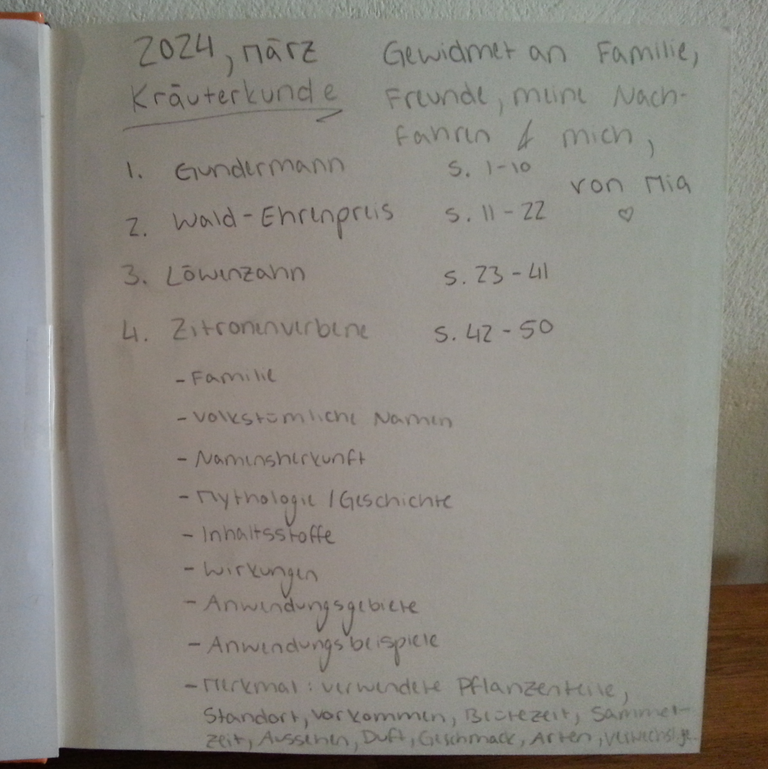 2024, März
Kräuterkunde
Gewidmet an Familie,
Freunde, meine Nach-
fahren & mich,
von Mia
♡
1. Gundermann S. 1-10
2. Wald-Ehrenpreis S. 11-22
3. Löwenzahn S. 23-41
4. Zitronenverbene S. 42-50
- Familie
- Volkstümliche Namen
- Namensherkunft
- Mythologie / Geschichte
- Inhaltsstoffe
- Wirkungen
- Anwendungsgebiete
- Anwendungsbeispiele
- Merkmal: verwendete Pflanzenteile,
Standort, Vorkommen, Blütezeit, Sammel-
zeit, Aussehen, Duft, Geschmack, Arten,